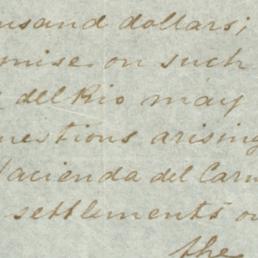 usand dollars;
mise on such
del Rio may
uestions arising
Hacienda del Carm
settlements o
the